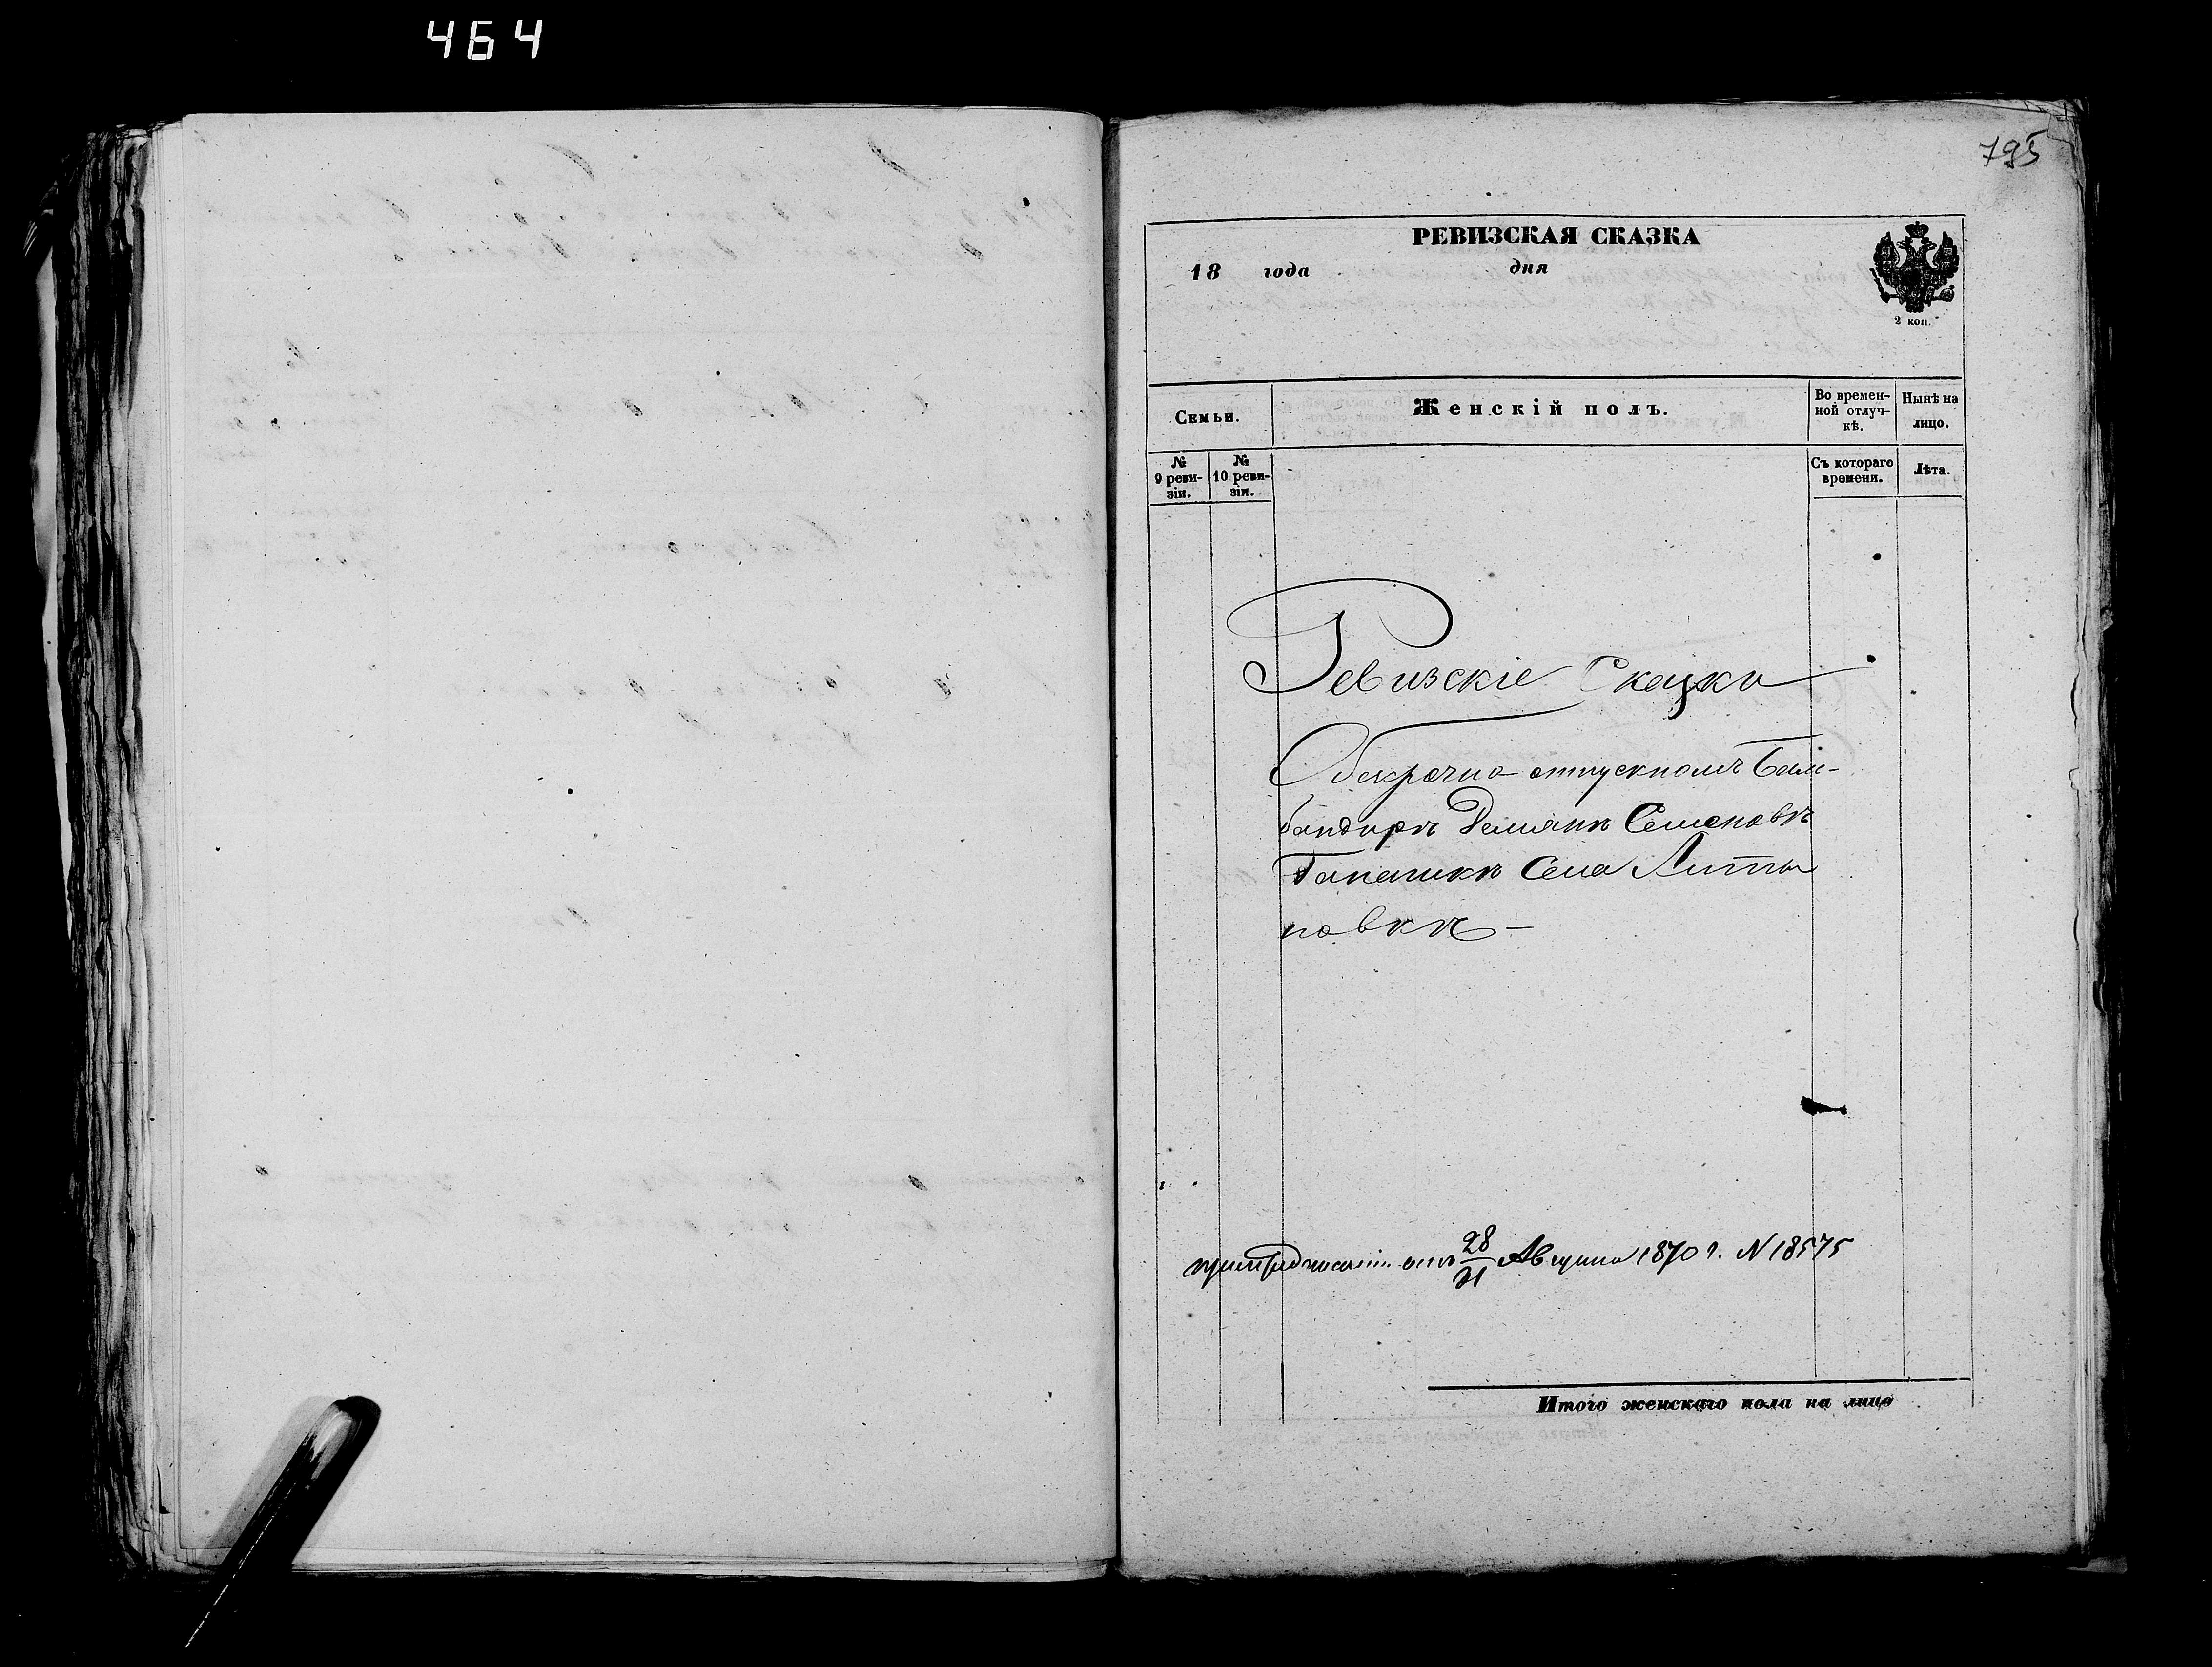 464
795
РЕВИЗСКАЯ СКАЗКА
18 года дня
2 коп.
Семьи.
Женскій полъ.
Во времен-
ной отлуч-
кѣ.
Нынѣ на
лицо.
№
9 реви-
зіи.
№
10 реви-
зіи.
Съ котораго
времени.
Лѣта.
Ревизскіе Сказки
О безсрочно-отпускномъ Бом-
бандирѣ Демянѣ Семеновѣ
Села Анто
новкѣ-
отъ 28/31 Августа 1870 г. N 18575
Итого женскаго пола на лицо